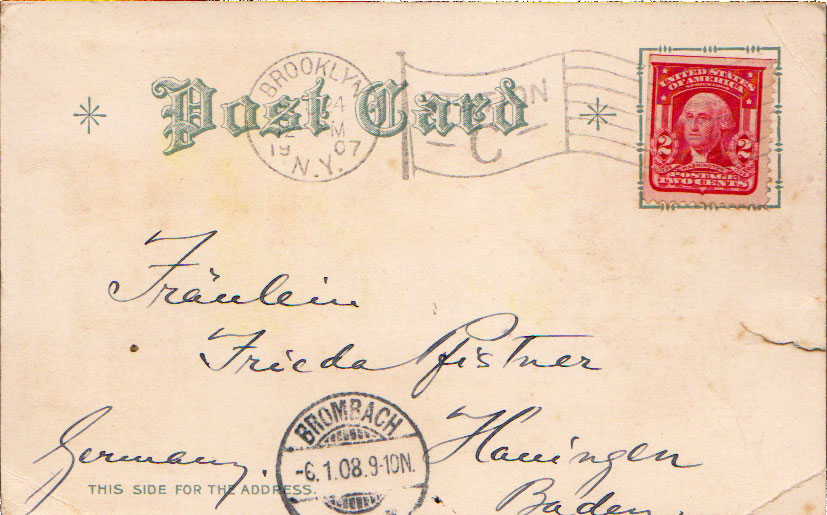 Post Card
BROOKLYN
4
M
1907
N.Y.
STATION
C
UNITED STATES
OF AMERICA
2 2
POSTAGE
TWO CENTS
Fräulein
Frieda Pfistner
BROMBACH
-6.1.08.9-10N.
Hauingen
Germany.
THIS SIDE FOR THE ADDRESS.
Baden.